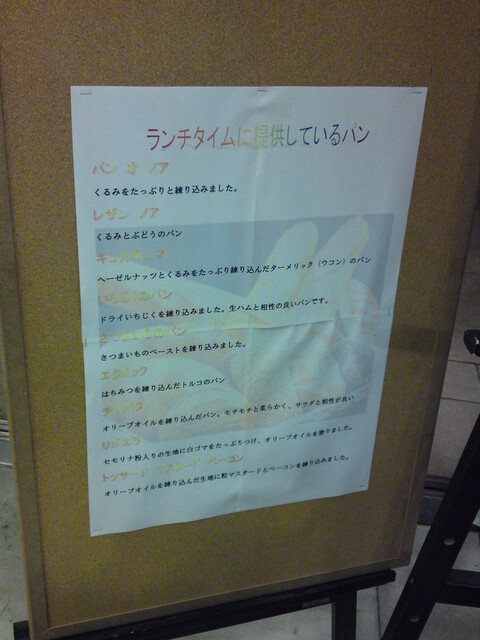 ランチタイムに提供しているパン
パン オ ノア
くるみをたっぷりと練り込みました。
レザン ノア
くるみとぶどうのパン
キュルキュマ
ヘーゼルナッツとくるみをたっぷり練り込んだターメリック（ウコン）のパン
いちじくのパン
ドライいちじくを練り込みました。生ハムと相性の良いパンです。
さつまいものパン
さつまいものペーストを練り込みました。
エクメック
はちみつを練り込んだトルコのパン
チャバタ
オリーブオイルを練り込んだパン。モチモチと柔らかく、サラダと相性が良い
リビエラ
セモリナ粉入りの生地に白ゴマをたっぷりつけ、オリーブオイルを塗りました。
トッサード マスタード ベーコン
オリーブオイルを練り込んだ生地に粒マスタードとベーコンを練り込みました。